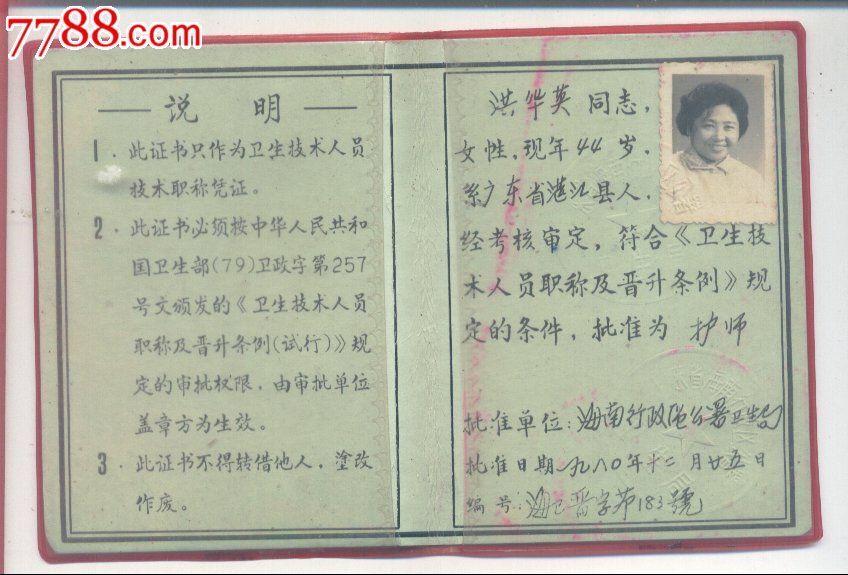 7788.com
说 明
1. 此证书只作为卫生技术人员
技术职称凭证。
2. 此证书必须按中华人民共和
国卫生部(79)卫政字第257
号文颁发的《卫生技术人员
职称及晋升条例(试行)》规
定的审批权限,由审批单位
盖章方为生效。
3. 此证书不得转借他人,塗改
作废。
洪华英 同志,
女性,现年 44 岁,
系广东省湛江县人,
经考核审定,符合《卫生技
术人员职称及晋升条例》规
定的条件,批准为 护师
批准单位:海南行政区公署卫生局
批准日期一九八0年十二月廿五日
编号:海卫晋字第183號